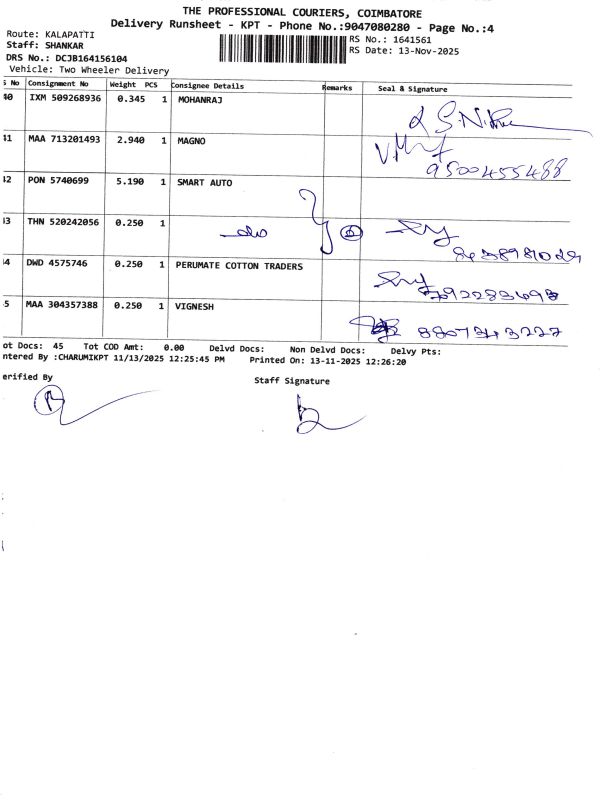 THE PROFESSIONAL COURIERS, COIMBATORE
Delivery Runsheet - KPT - Phone No.:9047080280 - Page No.:4
Route: KALAPATTI
Staff: SHANKAR
DRS No.: DCJB164156104
Vehicle: Two Wheeler Delivery
RS No.: 1641561
RS Date: 13-Nov-2025
S No Consignment No Weight PCS Consignee Details Remarks Seal & Signature
40 IXM 509268936 0.345 1 MOHANRAJ
41 MAA 713201493 2.940 1 MAGNO
9500455488
42 PON 5740699 5.190 1 SMART AUTO
43 THN 520242056 0.250 1
44 DWD 4575746 0.250 1 PERUMATE COTTON TRADERS
45 MAA 304357388 0.250 1 VIGNESH
ot Docs: 45 Tot COD Amt: 0.00 Delvd Docs: Non Delvd Docs: Delvy Pts:
ntered By :CHARUMIKPT 11/13/2025 12:25:45 PM Printed On: 13-11-2025 12:26:20
erified By
Staff Signature